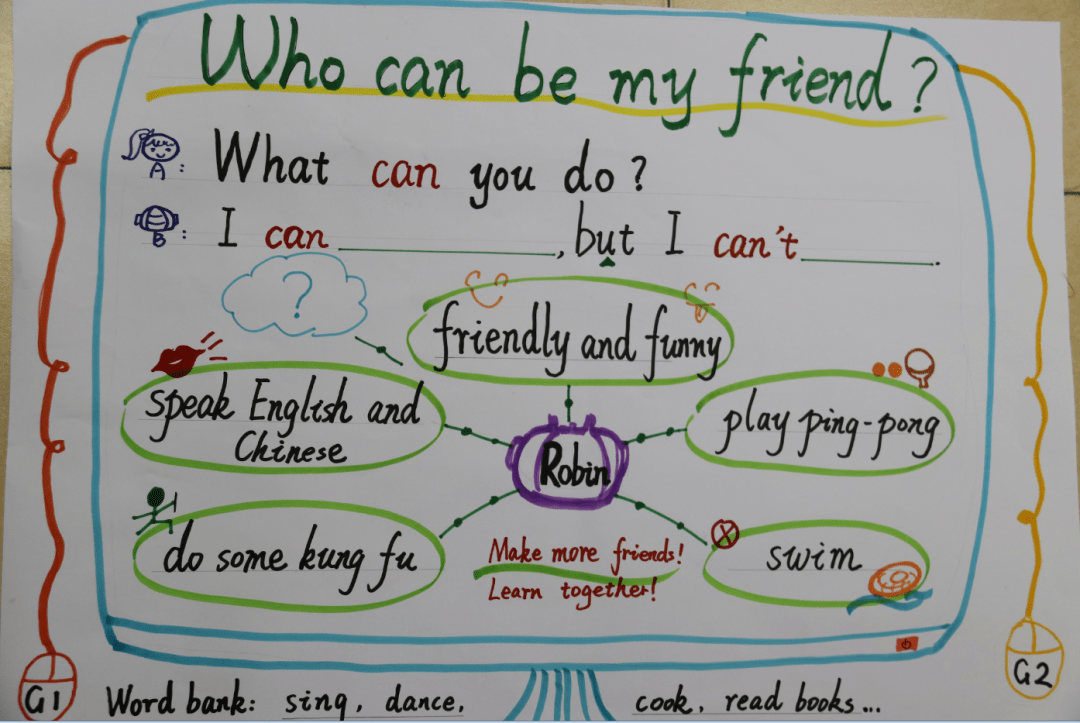 Who can be my friend?
A: What can you do?
B: I can ____________, but I can't ________.
?
friendly and funny
speak English and
Chinese
play ping-pong
Robin
do some kung fu
Make more friends!
Learn together!
swim
G1
G2
Word bank: sing, dance, cook, read books...